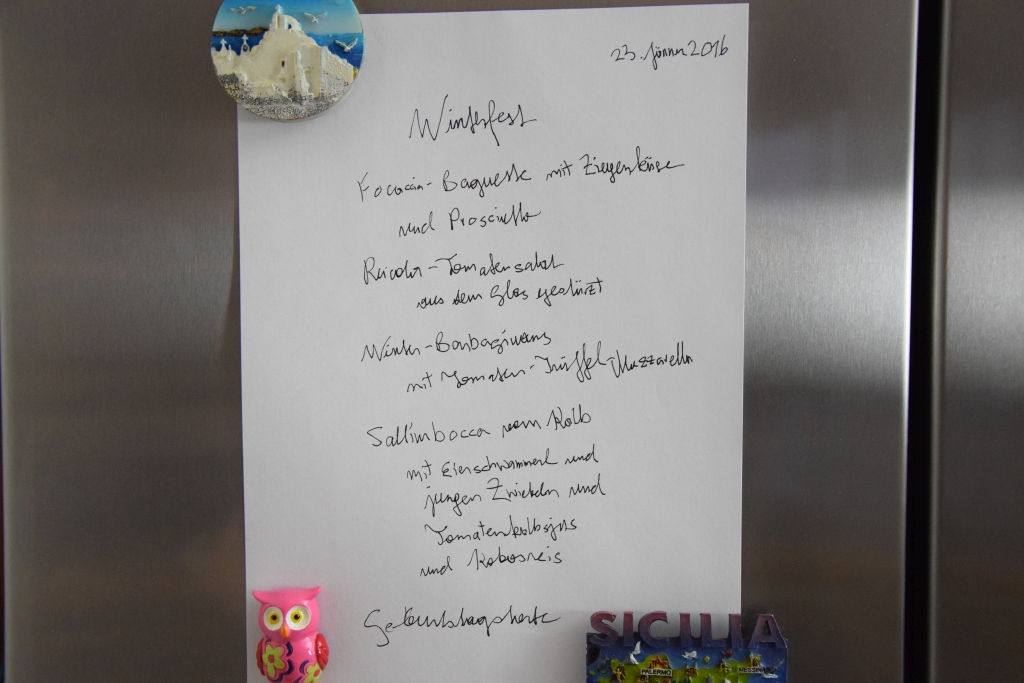 23. Jänner 2016
Winterfest
Focaccia-Baguette mit Ziegenkäse
und Prosciutto
Rucola-Tomatensalat
aus dem Glas gestürzt
Winter-Barbagiuans
mit Tomaten-Trüffel-Mozzarella
Saltimbocca vom Kalb
mit Eierschwammerl und
jungen Zwiebeln und
Tomatenkalbsjus
und Kokosreis
Geburtstagstorte
SICILIA
PALERMO
MESSINA